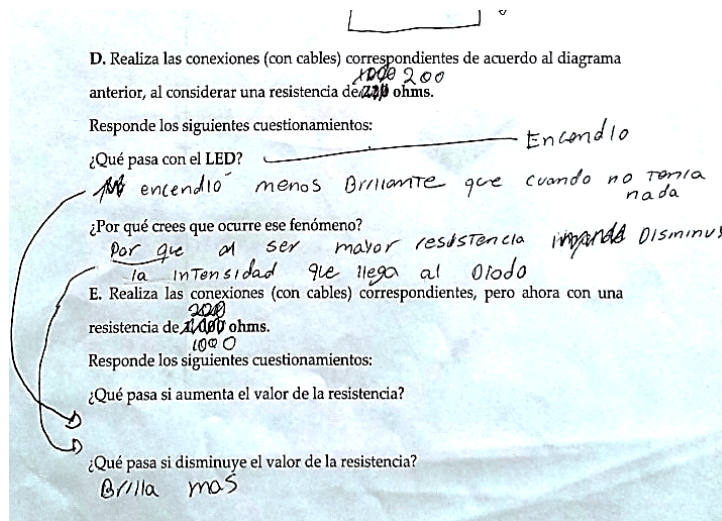 D. Realiza las conexiones (con cables) correspondientes de acuerdo al diagrama
200
anterior, al considerar una resistencia de ohms.
Responde los siguientes cuestionamientos:
Encendio
¿Qué pasa con el LED?
encendio menos Brillante que cuando no tenia
nada
¿Por qué crees que ocurre ese fenómeno?
Por que al ser mayor resistencia Disminu
la intensidad que llega al Diodo
E. Realiza las conexiones (con cables) correspondientes, pero ahora con una
resistencia de ohms.
1000
Responde los siguientes cuestionamientos:
¿Qué pasa si aumenta el valor de la resistencia?
¿Qué pasa si disminuye el valor de la resistencia?
Brilla mas